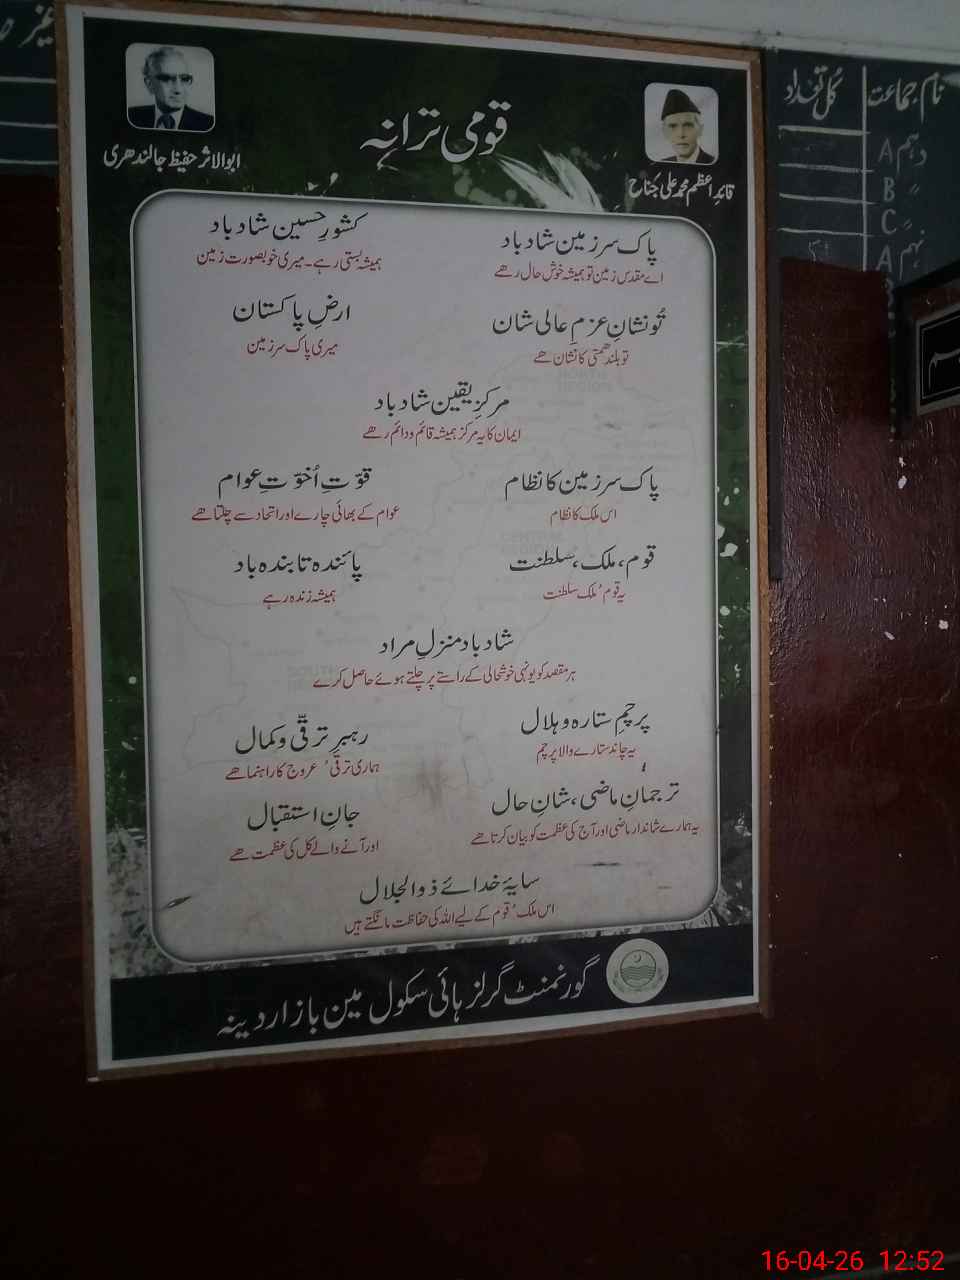 قومی ترانہ
قائدِ اعظم محمد علی جناح
ابوالاثر حفیظ جالندھری
پاک سر زمین شاد باد
اے مقدس زمین تو ہمیشہ خوش حال رھے
کشورِ حسین شاد باد
ہمیشہ بستی رہے۔ میری خوبصورت زمین
تُو نشانِ عزمِ عالی شان
تو بلند ھمتی کا نشان ھے
ارضِ پاکستان
میری پاک سرزمین
مرکزِ یقین شاد باد
ایمان کا یہ مرکز ہمیشہ قائم و دائم رھے
پاک سر زمین کا نظام
اس ملک کا نظام
قوّتِ اُخوّتِ عوام
عوام کے بھائی چارے اور اتحاد سے چلتا ھے
قوم، ملک، سلطنت
یہ قوم' ملک سلطنت
پائندہ تابندہ باد
ہمیشہ زندہ رہے
شاد باد منزلِ مراد
ہر مقصد کو یونہی خوشحالی کے راستے پر چلتے ہوئے حاصل کرے
پرچمِ ستارہ و ہلال
یہ چاند ستارے والا پرچم
رہبرِ ترقّی و کمال
ہماری ترقی' عروج کا راہنما ھے
ترجمانِ ماضی، شانِ حال
یہ ہمارے شاندار ماضی اور آج کی عظمت کو بیان کرتا ھے
جانِ استقبال
اور آنے والے کل کی عظمت ھے
سایۂ خدائے ذوالجلال
اس ملک' قوم کے لیے اللہ کی حفاظت مانگتے ہیں
گورنمنٹ گرلز ہائی سکول مین بازار دینہ
نام جماعت
کُل تعداد
دہم A
" B
" C
نہم A
16-04-26 12:52